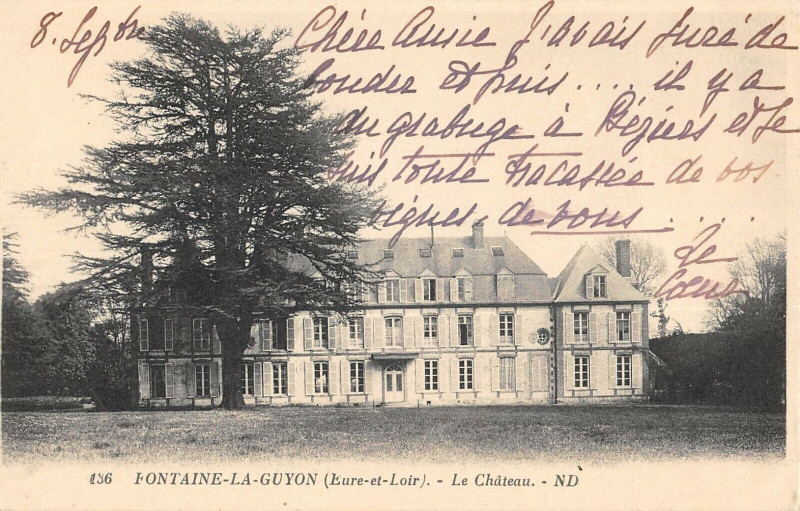 8. Septbre
Chère Amie J'avais juré de
bouder et puis.... il y a
du grabuge à Béziers et je
suis toute tracassée de vos
vignes de vous....
Je
136 FONTAINE-LA-GUYON (Eure-et-Loir). - Le Château. - ND